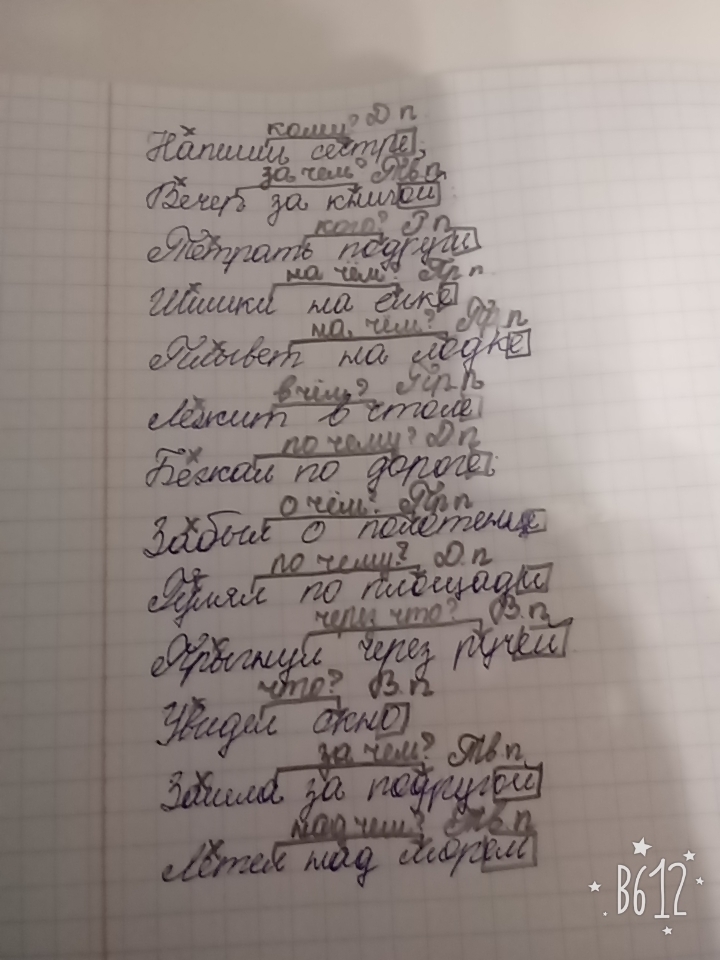 кому? Д п
Напиши сестре,
за чем? Тв п
Вечер за книгой
кого? Р п
Тетрать подруги
на чём? Пр п
Шишки на ёлке
на чём? Пр п
Плывет на лодке
в чём? Пр п
Лежит в столе
по чему? Д п
Бежал по дороге
о чём? Пр п
Забыл о полотенце
по чему? Д. п
Гулял по площади
через что? В. п
Прыгнул через ручей
что? В. п
Увидел окно
за чем? Тв п
Зашла за подругой
над чем? Тв п
Летел над морем
B612